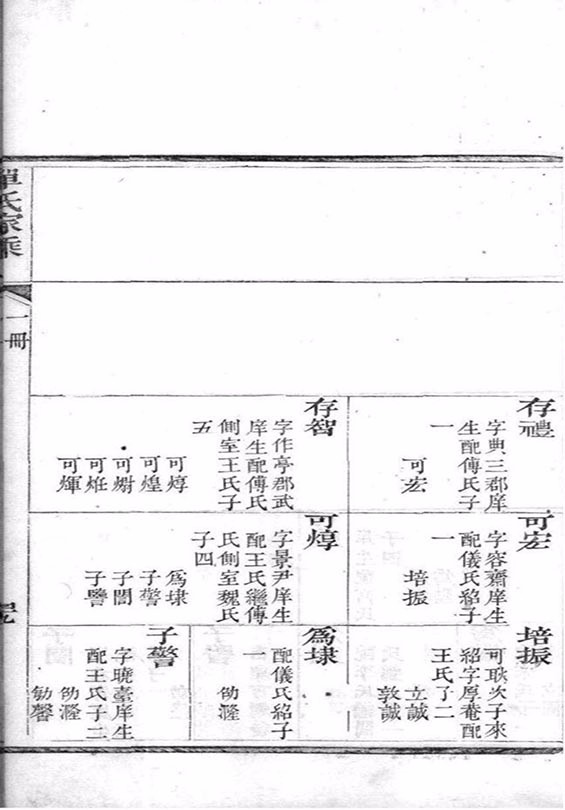 存禮
字典三郡庠
生配傅氏子
一
可宏
存智
字作亭郡武
庠生配傅氏
側室王氏子
五
可焞
可煌
可爝
可炡
可煇
可宏
字容齋庠生
配儀氏紹子
一
培振
可焞
字景尹庠生
配王氏繼傅
氏側室魏氏
子四
為埭
子警
子誾
子謽
培振
可耿次子來
紹字厚菴配
王氏子二
立誠
敦誠
為埭
配儀氏紹子
一
子警
字聰臺庠生
配王氏子二
單氏家乘
一冊